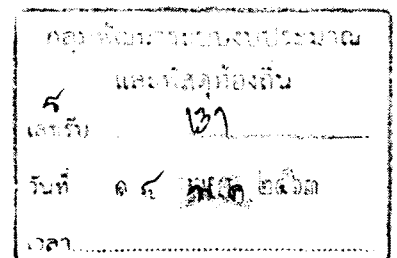 กลุ่มพัฒนาระบบงบประมาณ
และพัสดุท้องถิ่น
เลขรับ
วันที่ ๑๕ ๒๕๖๓
เวลา